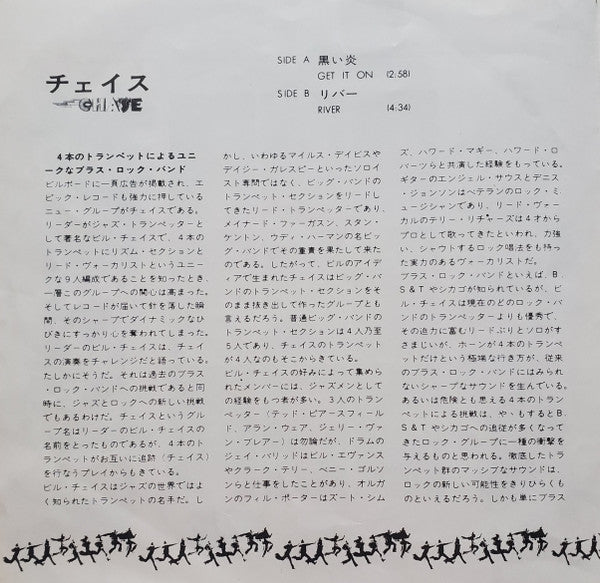 チェイス
CHASE
SIDE A 黒い炎
GET IT ON (2:58)
SIDE B リバー
RIVER (4:34)
4本のトランペットによるユニ
ークなブラス・ロック・バンド
ビルボードに一頁広告が掲載され、エ
ピック・レコードも強力に押している
ニュー・グループがチェイスである。
リーダーがジャズ・トランペッターと
して著名なビル・チェイスで、4本の
トランペットにリズム・セクションと
リード・ヴォーカリストというユニー
クな9人編成であることを知ったとき、
一層このグループへの関心は高まった。
そしてレコードが届いて針を落した瞬
間、そのシャープでダイナミックなひ
びきにすっかり心を奪われてしまった。
リーダーのビル・チェイスは、チェイ
スの演奏をチャレンジだと語っている。
たしかにそうだ。それは過去のブラス
・ロック・バンドへの挑戦であると同
時に、ジャズとロックへの新しい挑戦
でもあるわけだ。チェイスというグル
ープ名はリーダーのビル・チェイスの
名前をとったものであるが、4本のト
ランペットがお互いに追跡(チェイス)
を行なうプレイからもきている。
ビル・チェイスはジャズの世界ではよ
く知られたトランペットの名手だ。し
かし、いわゆるマイルス・デイビスや
デイジー・ガレスピーといったソロイ
スト専門ではなく、ビッグ・バンドの
トランペット・セクションをリードし
てきたリード・トランペッターであり、
メイナード・ファーガスン、スタン・
ケントン、ウディ・ハーマンの名ビッ
グ・バンドでその重責を果たして来た
のである。したがって、ビルのアイデ
ィアで生まれたチェイスはビッグ・バ
ンドのトランペット・セクションをそ
のまま抜き出して作ったグループとも
言えるだろう。普通ビッグ・バンドの
トランペット・セクションは4人乃至
5人であり、チェイスのトランペット
が4人なのもそこからきている。
ビル・チェイスの好みによって集めら
れたメンバーには、ジャズメンとして
の経験をもつ者が多い。3人のトラン
ペッター(テッド・ピアースフィール
ド、アラン・ウェア、ジェリー・ヴァ
ン・ブレアー)は勿論だが、ドラムの
ジェイ・バリッドはビル・エヴァンス
やクラーク・テリー、ベニー・ゴルソ
ンらと仕事をしたことがあり、オルガ
ンのフィル・ポーターはズート・シム
ズ、ハワード・マギー、ハワード・ロ
バーツらと共演した経験をもっている。
ギターのエンジェル・サウスとデニス
・ジョンソンはベテランのロック・ミ
ュージシャンであり、リード・ヴォー
カルのテリー・リチャーズは4才から
プロとして歌ってきたといわれ、力強
い、シャウトするロック唱法をも持っ
た実力のあるヴォーカリストだ。
ブラス・ロック・バンドといえば、B.
S&Tやシカゴが知られているが、ビ
ル・チェイスは現在のどのロック・バ
ンドのトランペッターよりも優秀で、
その迫力に富むリードぶりとソロがす
さまじいが、ホーンが4本のトランペ
ットだけという極端な行き方が、従来
のブラス・ロック・バンドにはみられ
ないシャープなサウンドを生んでいる。
あるいは危険とも思える4本のトラン
ペットによる挑戦は、やゝもするとB.
S&Tやシカゴへの追従が多くなって
きたロック・グループに一種の衝撃を
与えるものと思われる。徹底したトラ
ンペット群のマッシブなサウンドは、
ロックの新しい可能性をきりひらくも
のといえるだろう。しかも単にブラス